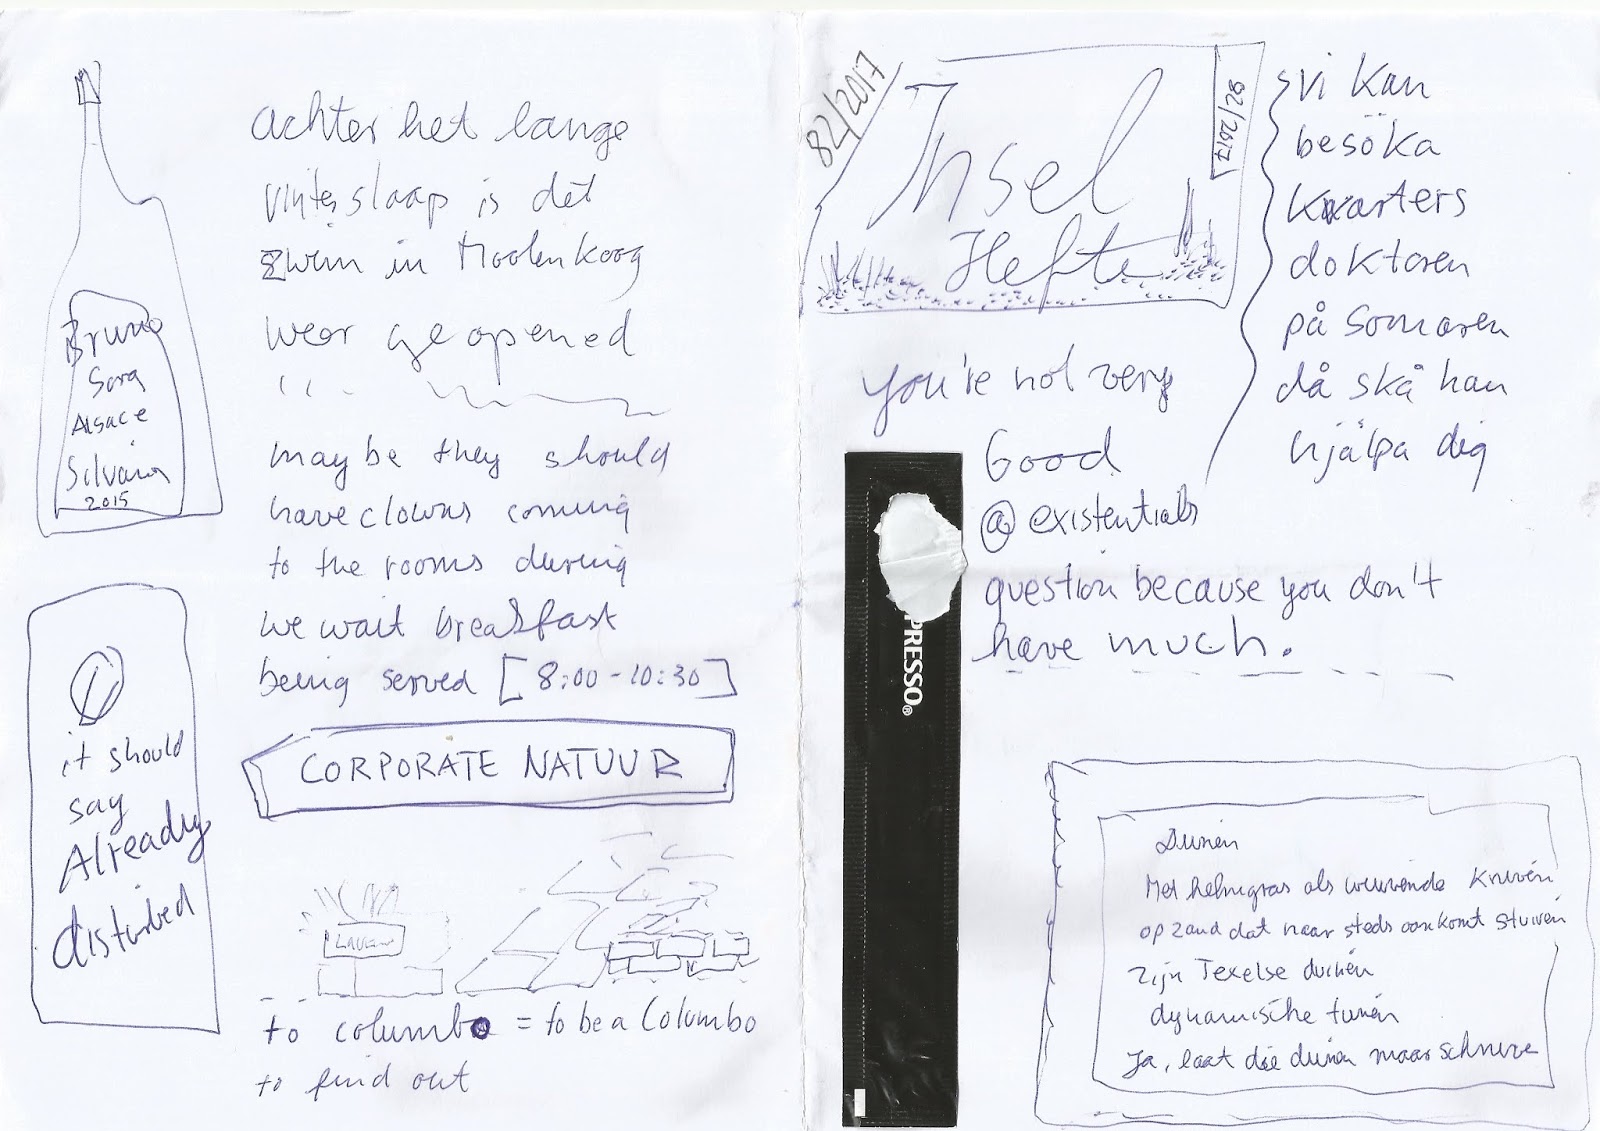 Bruno
Sorg
Alsace
Silvaner
2015
it should
say
Already
disturbed
achter het lange
winterslaap is det
zwin in Moolenkoog
weer geopened
maybe they should
have clowns coming
to the rooms during
we wait breakfast
being served [8:00-10:30]
CORPORATE NATUUR
to columbo = to be a Columbo
to find out
82/2017
Insel
Hefte
82/2017
you're not very
Good
@ existentials
question because you don't
have much.
vi kan
besöka
kwarters
doktoren
på somaren
då skå han
hjälpa dig
PRESSO®
Duinen
Met helmgras als wuivende kruven
op zand dat naar steds aankomt stuiven
zijn Texelse duinen
dynamische tuinen
Ja, laat die duinen maar schuive